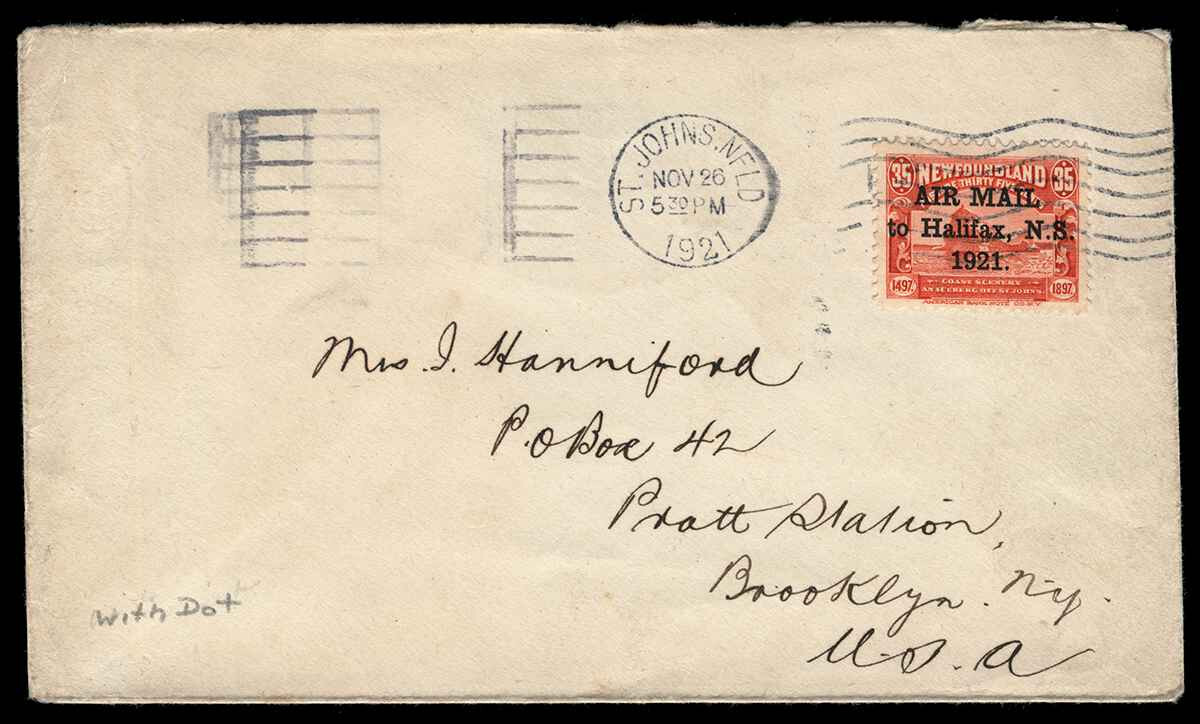 ST. JOHNS. NFLD
NOV 26
5 30 PM
1921
35 NEWFOUNDLAND 35
THIRTY FIVE
AIR MAIL
to Halifax, N.S.
1921.
COAST SCENERY
1497 AN ICEBERG OFF ST. JOHNS 1897
AMERICAN BANK NOTE CO. N.Y.
Mrs. J. Hanniford
P.O Box 42
Pratt Station,
Brooklyn. Ny.
U.S.A
With Dot